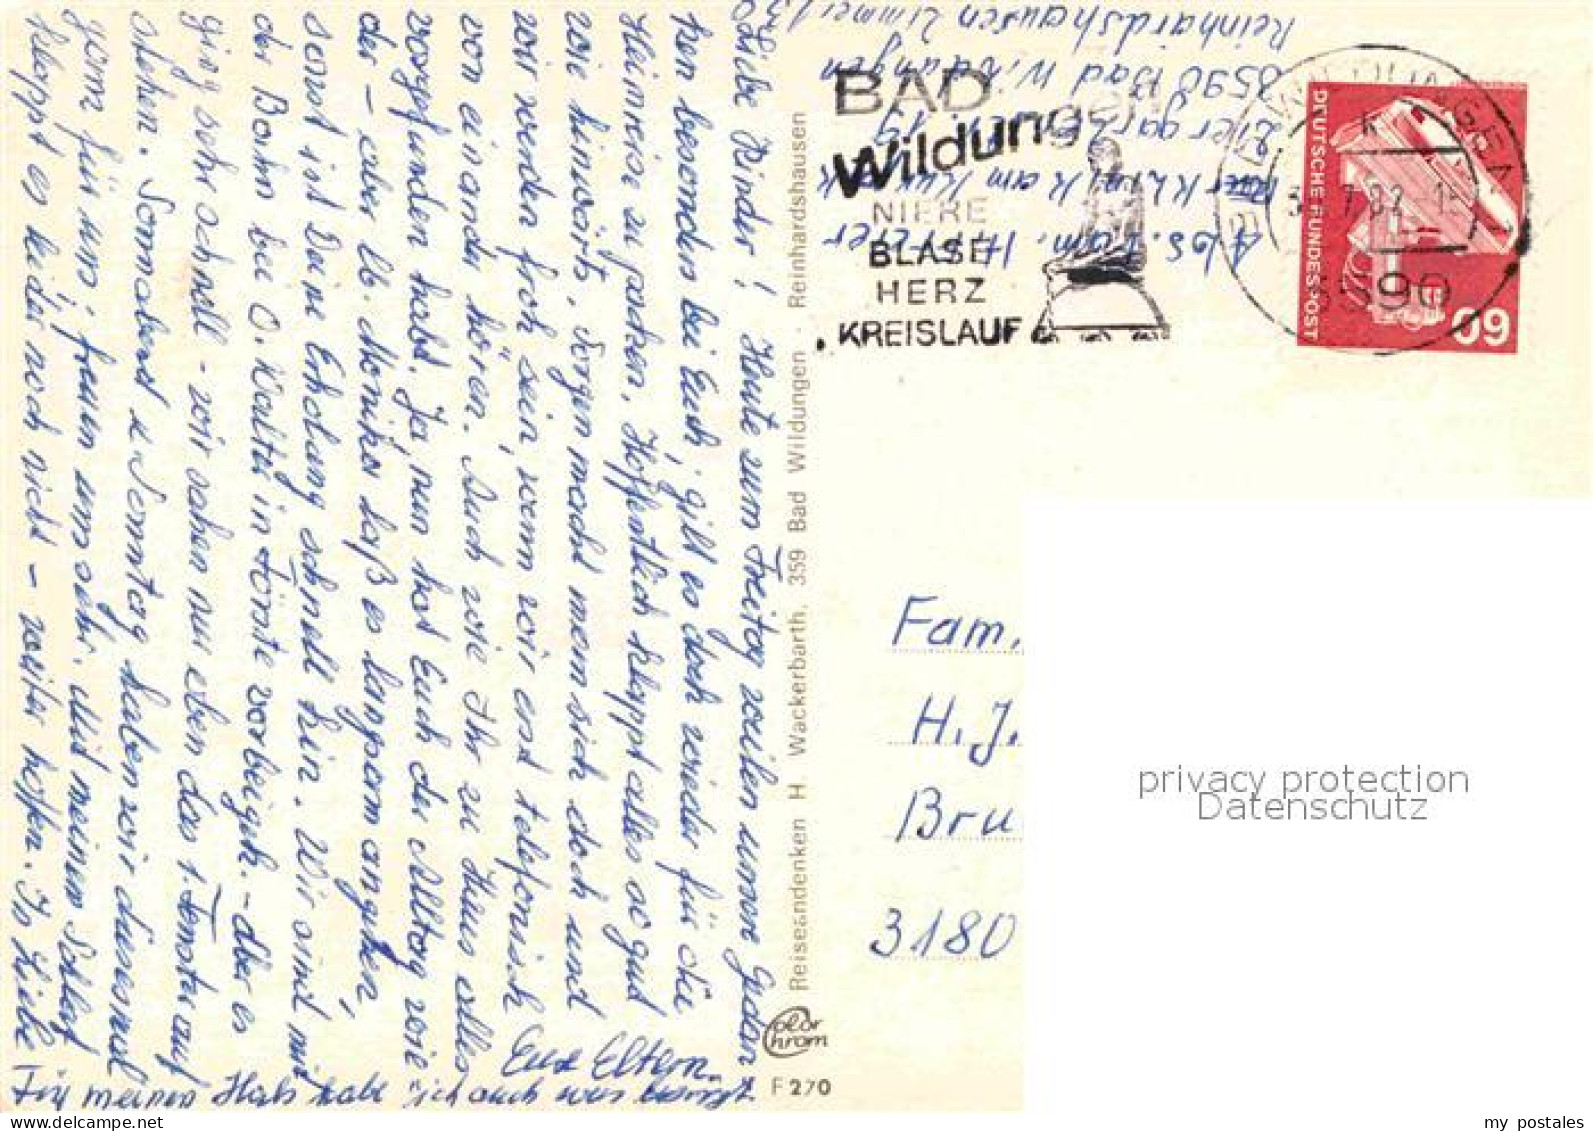 Liebe Kinder! Heute zum Freitag weilen unsere Gedan-
ken besonders bei Euch, gilt es doch wieder für die
Heimreise zu packen. Hoffentlich klappt alles so gut
wie hinwärts, Sorgen macht man sich doch und
wir werden froh sein, wenn wir erst telefonisch
von einander hören. Auch wie Ihr zu Haus alles
vorgefunden habt. Ja, nun hat Euch der Alltag wie-
der - aber lb. Monika laß es langsam angehen,
sonst ist Deine Erholung schnell hin. Wir sind mit
der Bahn bei O. Walter in Förste vorbeigef. - aber es
ging sehr schnell - wir sahen nur eben das 1. Fenster auf
stehen. Sonnabend u. Sonntag haben wir diesesmal
gern für uns, freuen uns sehr. Mit meinem Schlaf
klappt es leider noch nicht - weiter hoffen. In Liebe
Eure Eltern.
Für meinen Hals habe ich auch was
Reiseandenken H. Wackerbarth, 359 Bad Wildungen - Reinhardshausen
Color
chrom
F 270
Abs. Fam. H.
Klinik am Kur
Ziergarten 19
3590 Bad Wildungen
Reinhardshausen Zimmer
BAD
Wildungen
NIERE
BLASE
HERZ
KREISLAUF
3590
DEUTSCHE BUNDESPOST
60
Fam.
H. J.
Bru
3180
privacy protection
Datenschutz
my postales